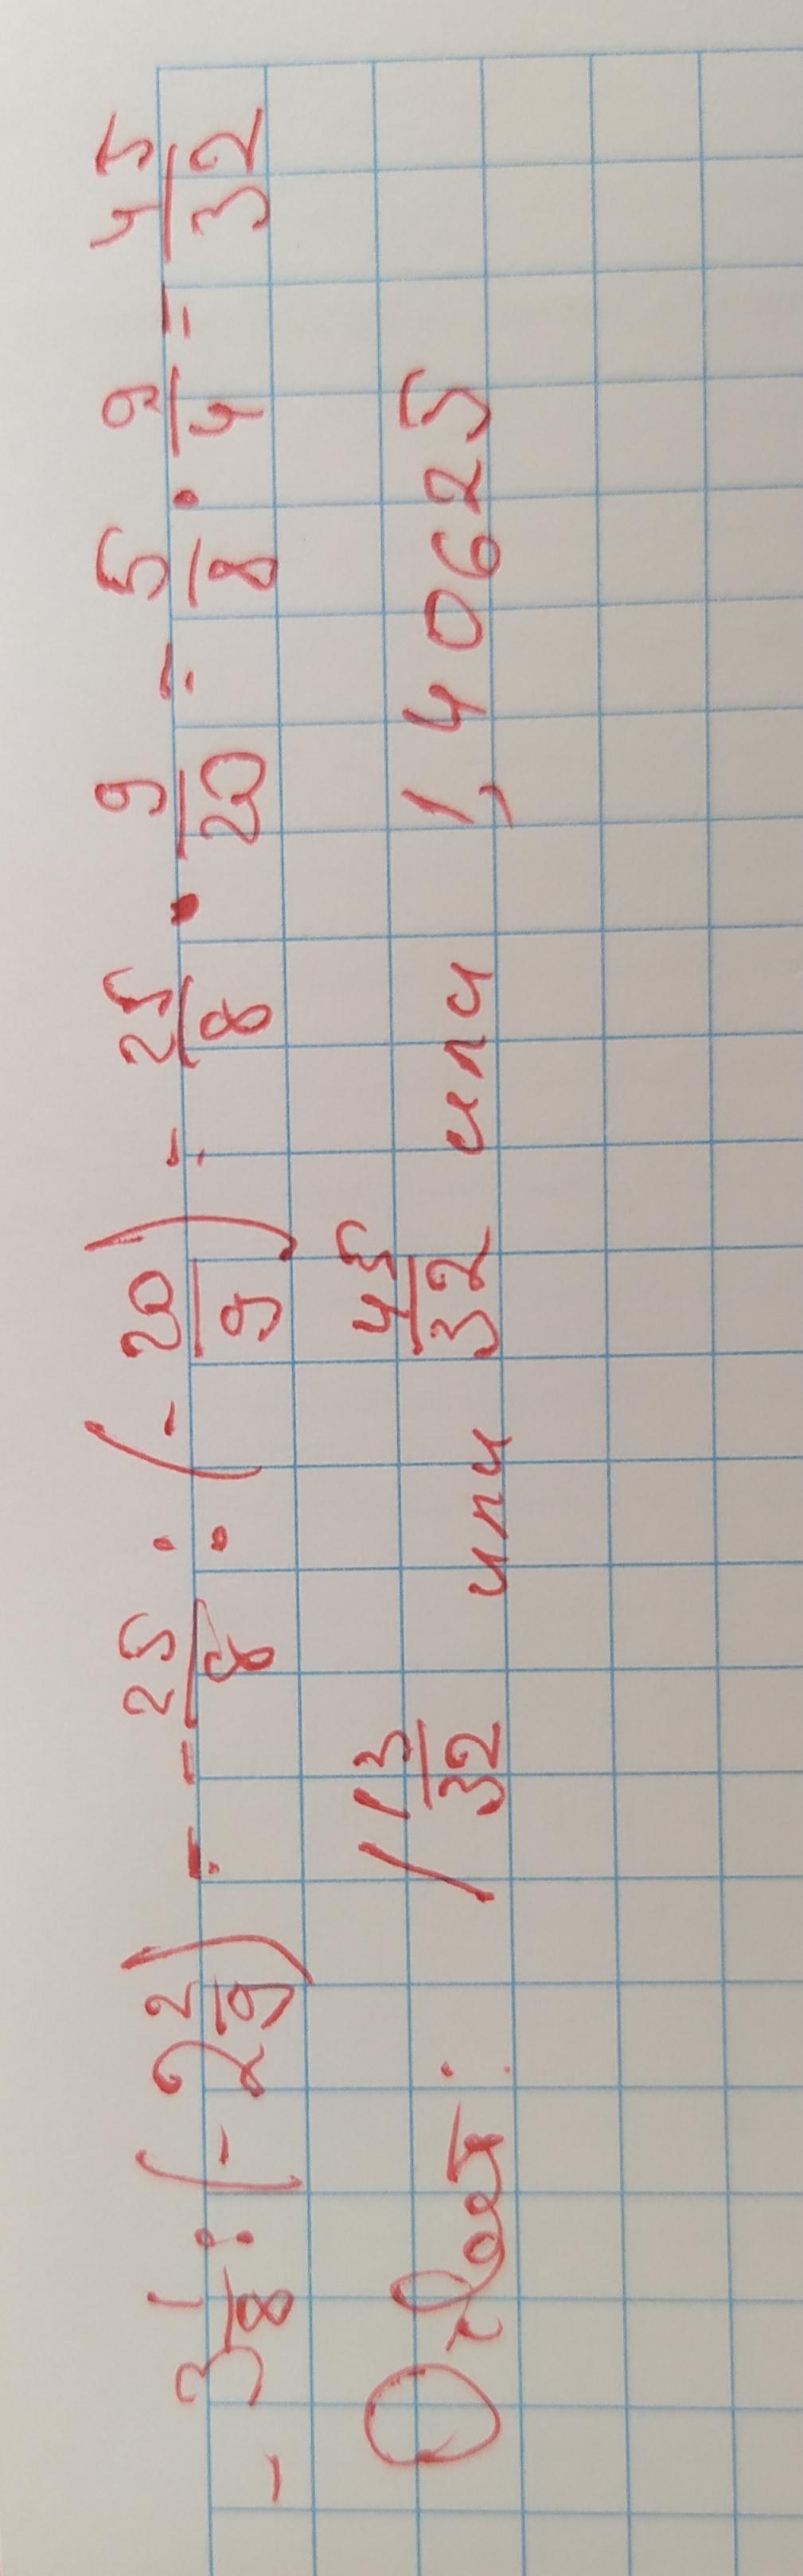 - 3 1/8 : (- 2 2/9) = - 25/8 : (- 20/9) = 25/8 · 9/20 = 5/8 · 9/4 = 45/32
Ответ: 1 13/32 или 45/32 или 1,40625